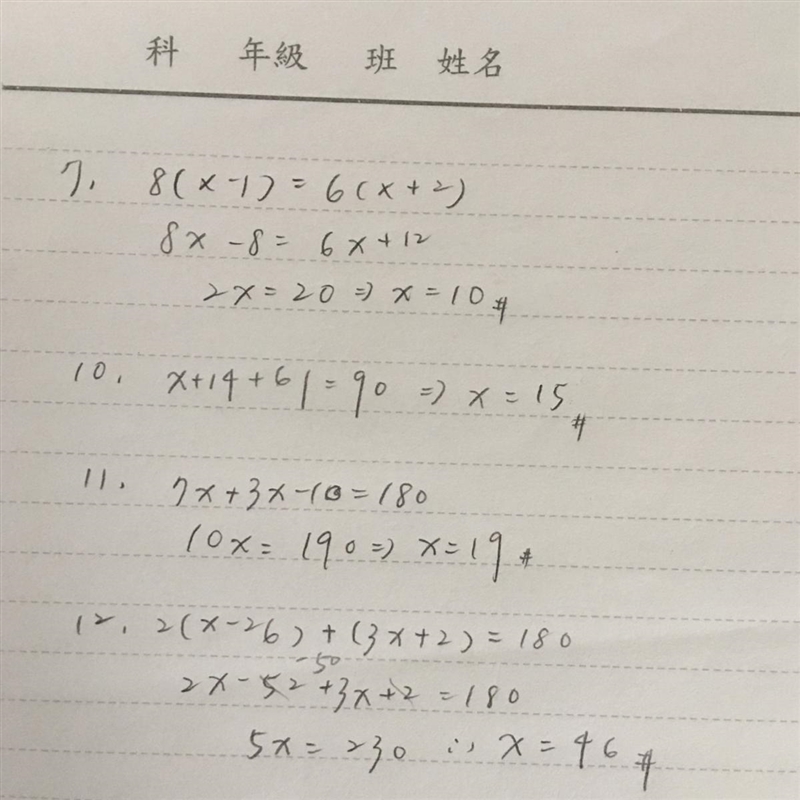 科 年級 班 姓名
7. 8(x-1)=6(x+2)
8x-8=6x+12
2x=20⇒x=10#
10. x+14+61=90 ⇒ x=15#
11. 7x+3x-10=180
10x=190⇒x=19#
12. 2(x-26)+(3x+2)=180
-50
2x-52+3x+2=180
5x=230 ∴ x=46#